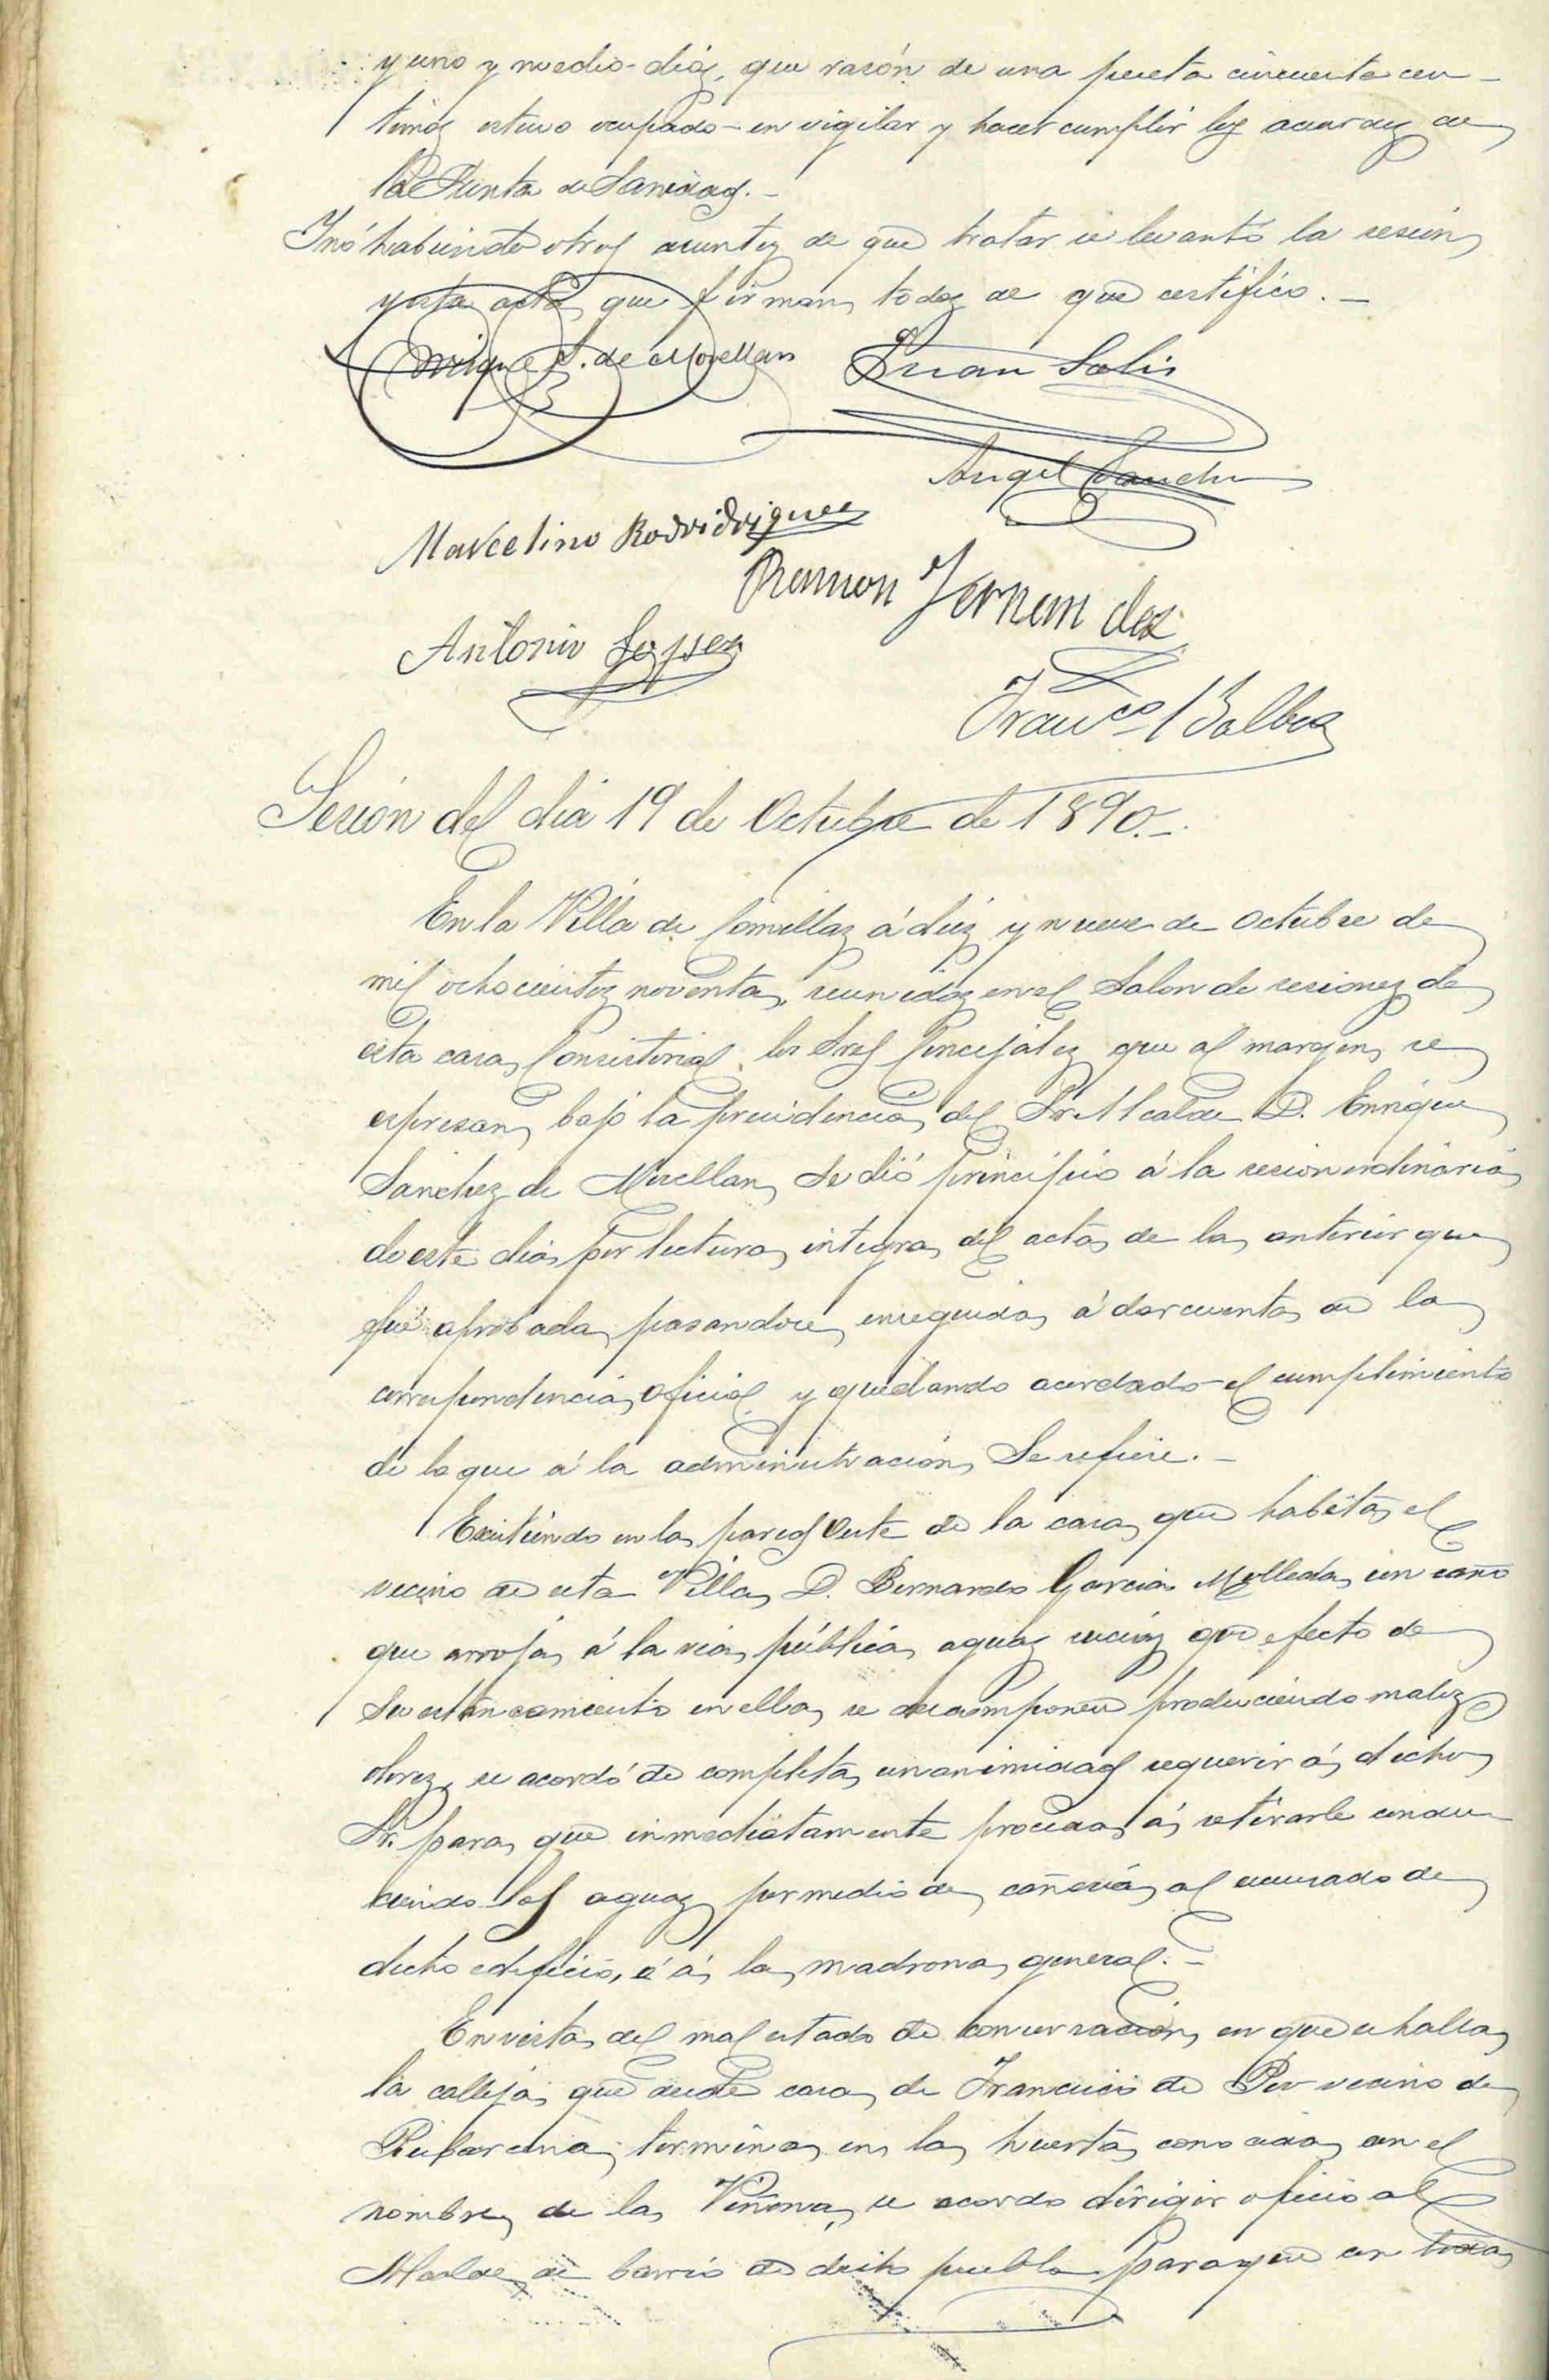 y uno y medio dias, que razón de una peseta cincuenta cen-
timos estuvo ocupado en vigilar y hacer cumplir los acuerdos de
la Junta de Sanidad.-
Y nó habiendo otros asuntos de que tratar se levantó la sesión
y esta acta que firman todos de que certifico.-
Enrique S. de Movellan Juan Solis
Angel Sanchez
Marcelino Rodridriguez
Ramon Fernandez
Antonio Lopez
Franco Balbas
Sesión del dia 19 de Octubre de 1890.-
En la Villa de Comillas á diez y nueve de Octubre de
mil ochocientos noventa, reunidos en el Salon de sesiones de
esta casa Consistorial, los Sres Concejales que al margen se
espresan, bajo la presidencia del Sr. Alcalde D. Enrique
Sanchez de Movellan, se dió principio á la sesion ordinaria
de este dia por lectura integra del acta de la anterior que
fué aprobada, pasandose enseguida á dar cuenta de la
correspondencia oficial y quedando acordado el cumplimiento
de lo que á la administración se refiere.-
Existiendo en la pared Oeste de la casa que habita el
vecino de esta Villa D. Bernardo Garcia Molleda, un caño
que arroja á la via pública aguas sucias que efecto de
su estancamiento en ella, se descomponen produciendo malos
olores, se acordó de completa unanimidad requerir á dicho
Sr. para que inmediatamente proceda á retirarle condu-
ciendo las aguas por medio de cañeria al escusado de
dicho edificio, ó á la madrona general.-
En vista del mal estado de conservación en que se halla
la calleja que desde casa de Francisco de Pó vecino de
Rubarcena, termina en la huerta conocida con el
nombre de la Viñona, se acordo dirigir oficio al
Alcalde de barrio de dicho pueblo para que con toda